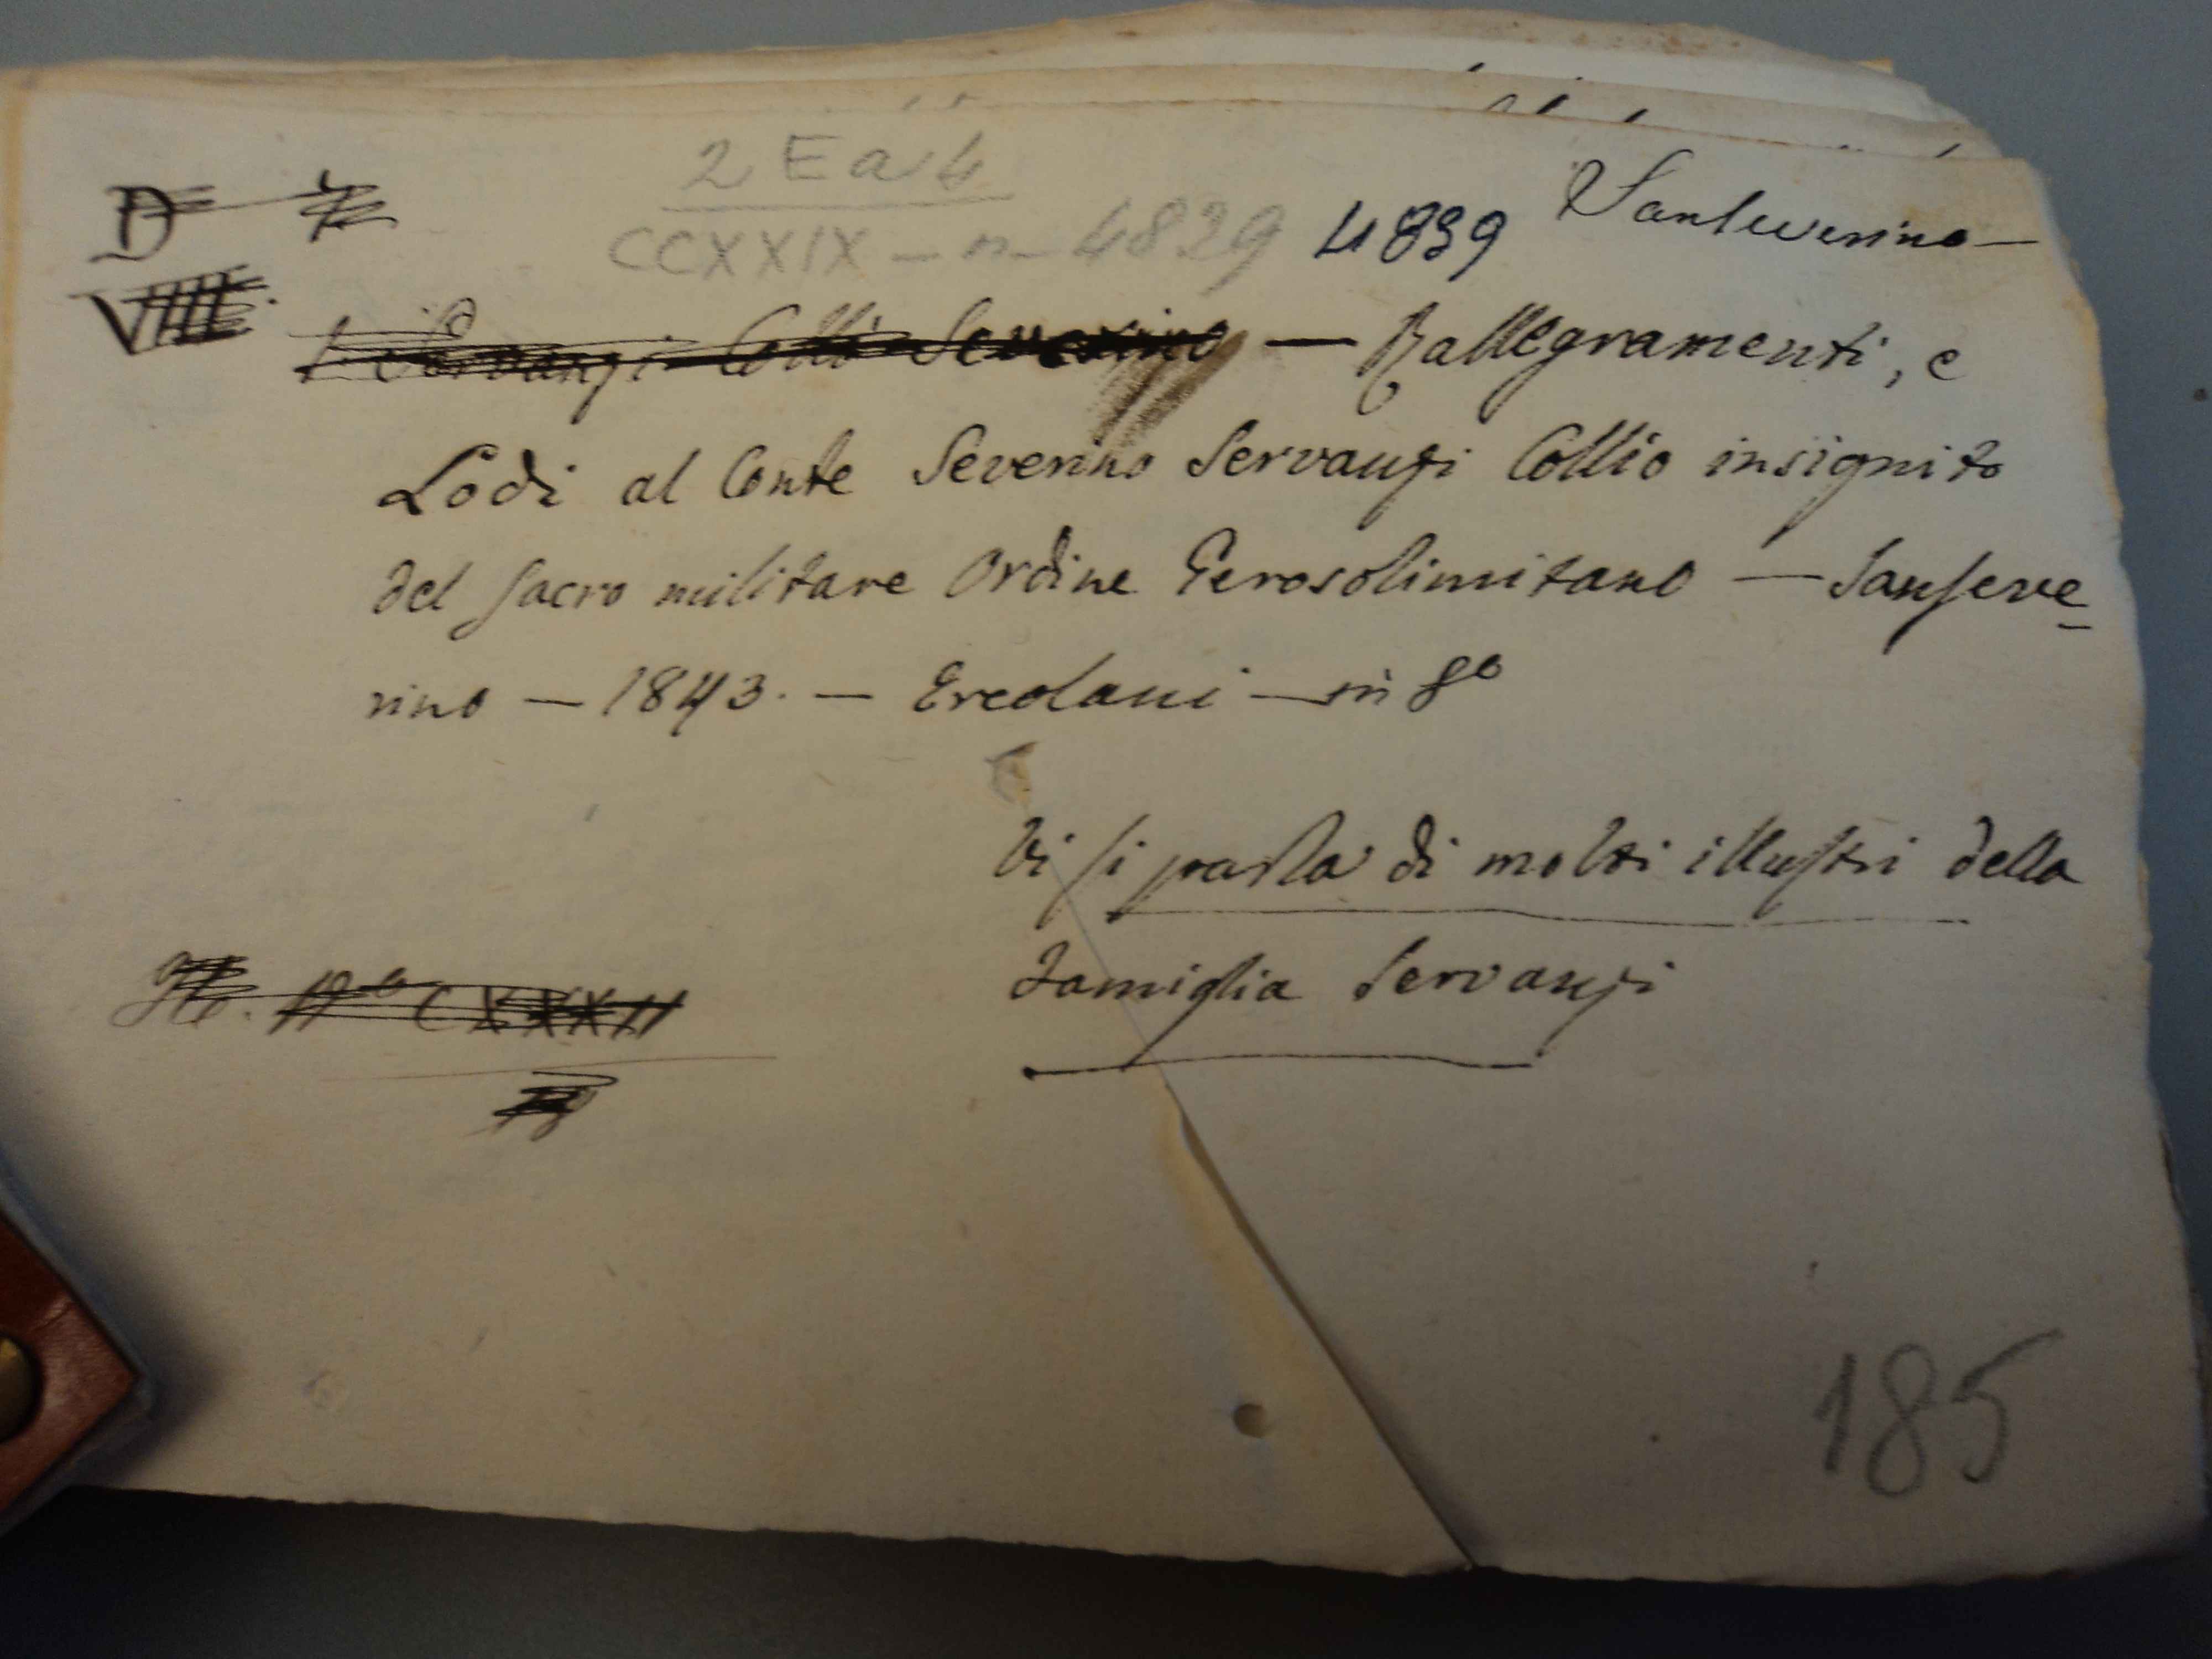 2 E a 4
CCXXIX - n - 4839 4839 Sanseverino —
VIIII.
Servanzi Collio Severino — Rallegramenti, e
Lodi al Conte Severino Servanzi Collio insignito
del sacro militare Ordine Gerosolimitano — Sanseve
rino — 1843. — Ercolani — in 8º
Vi si parla di molti illustri della
famiglia Servanzi
Nº CXXXII
185